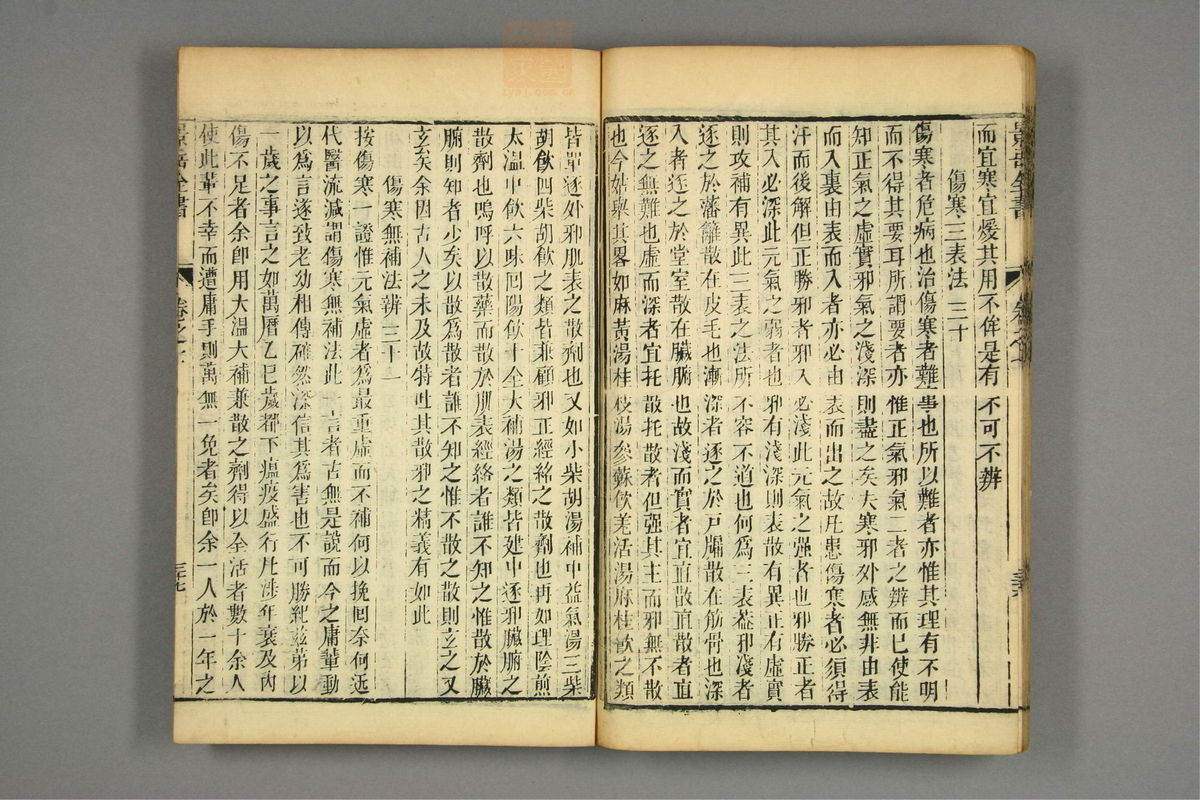 而宜寒宜煖其用不侔是有不可不辨
傷寒三表法 三十
傷寒者危病也治傷寒者難事也所以難者亦惟其理有不明
而不得其要耳所謂要者亦惟正氣邪氣二者之辨而已使能
知正氣之虛實邪氣之淺深則盡之矣夫寒邪外感無非由表
而入裏由表而入者亦必由表而出之故凡患傷寒者必須得
汗而後解但正勝邪者邪入必淺此元氣之强者也邪勝正者
其入必深此元氣之弱者也邪有淺深則表散有異正有虛實
則攻補有異此三表之法所不容不道也何爲三表蓋邪淺者
逐之於藩籬散在皮毛也漸深者逐之於戸牖散在筋骨也深
入者逐之於堂室散在臟腑也故淺而實者宜直散直散者直
逐之無難也虛而深者宜托散托散者但强其主而邪無不散
也今姑舉其畧如麻黃湯桂枝湯參蘇飲羌活湯麻桂飲之類
皆單逐外邪肌表之散劑也又如小柴胡湯補中益氣湯三柴
胡飲四柴胡飲之類皆兼顧邪正經絡之散劑也再如理陰煎
大溫中飲六味回陽飲十全大補湯之類皆建中逐邪臟腑之
散劑也嗚呼以散藥而散於肌表經絡者誰不知之惟散於臟
腑則知者少矣以散爲散者誰不知之惟不散之散則玄之又
玄矣余因古人之未及故特吐其散邪之精義有如此
傷寒無補法辨 三十一
按傷寒一證惟元氣虛者爲最重虛而不補何以挽回奈何近
代醫流減謂傷寒無補法此一言者古無是說而今之庸輩動
以爲言遂致老幼相傳確然深信其爲害也不可勝紀茲第以
一歲之事言之如萬曆乙巳歲都下瘟疫盛行凡涉年衰及內
傷不足者余卽用大溫大補兼散之劑得以全活者數十余人
使此輩不幸而遭庸手則萬無一免者矣卽余一人於一年之
景岳全書
卷之七
三七
景岳全書